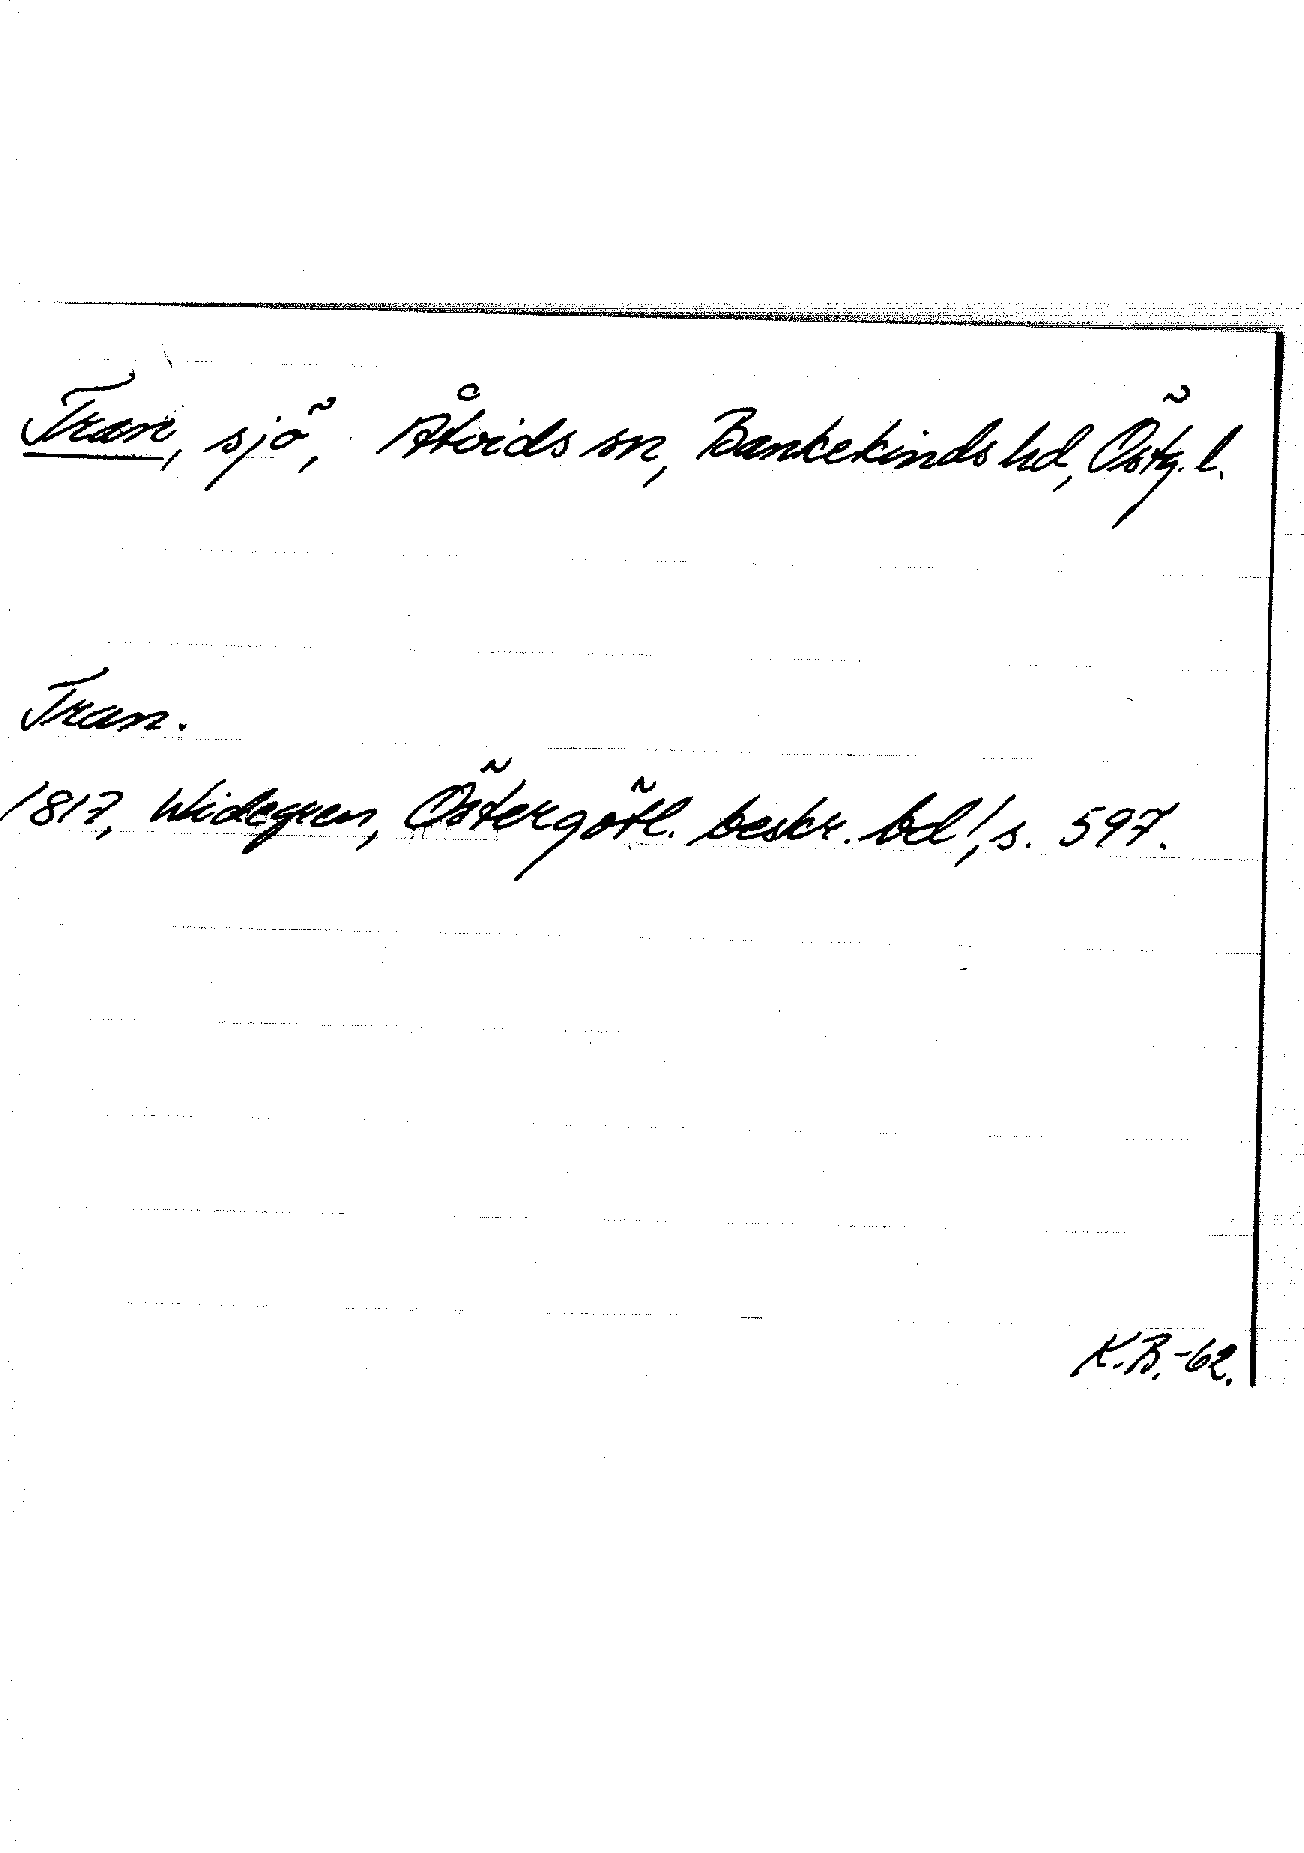 Tran, sjö, Åtvids sn, Bankekinds hd, Östg. l.
Tran.
1817, Widegren, Östergötl. beskr. bd 1, s. 597.
K.B.-62.